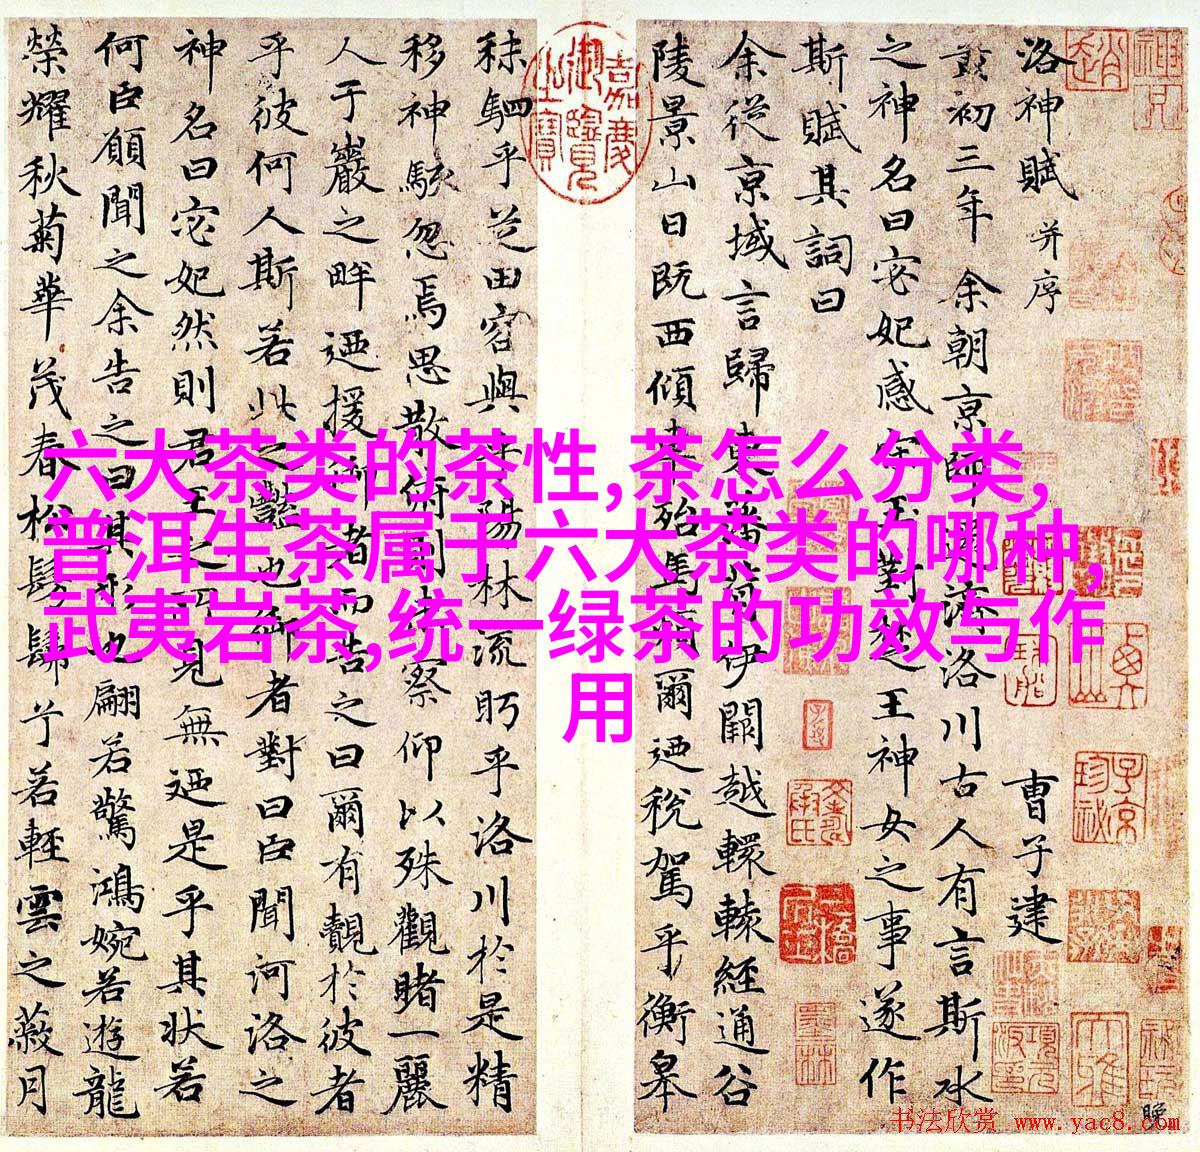 六大茶类的茶性,茶怎么分类,
普洱生茶属于六大茶类的哪种,
武夷岩茶,统一绿茶的功效与作
用
洛神賦 并序 曹子建
黃初三年余朝京師還濟洛川古人有言斯水
之神名曰宓妃感宋玉對楚王神女之事遂作
斯賦其詞曰
余從京域言歸東藩背伊闕越轘轅經通谷
陵景山日既西傾車殆馬煩爾迺稅駕乎衡皋
秣駟乎芝田容與乎陽林流眄乎洛川於是精
移神駭忽焉思散俯則未察仰以殊觀睹一麗
人于巖之畔迺援御者而告之曰爾有覿於彼者
乎彼何人斯若此之豔也御者對曰臣聞河洛之
神名曰宓妃然則君王之所見無迺是乎其狀若
何臣願聞之余告之曰其形也翩若驚鴻婉若遊龍
榮耀秋菊華茂春松髣髴兮若輕雲之蔽月
嘉慶御覽之寶
书法欣赏 www.yac8.com